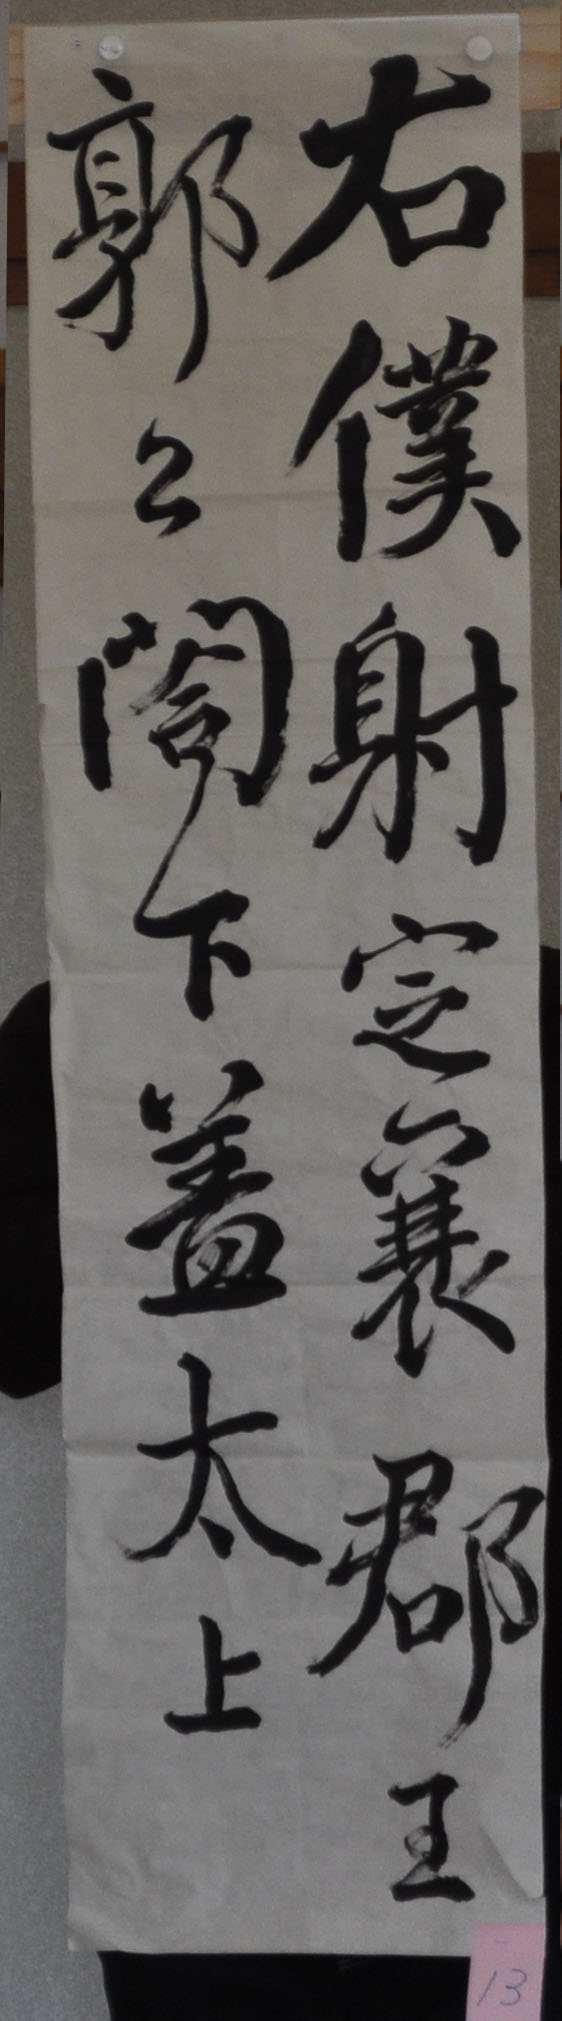 右僕射定襄郡王
郭公閤下蓋太上
13